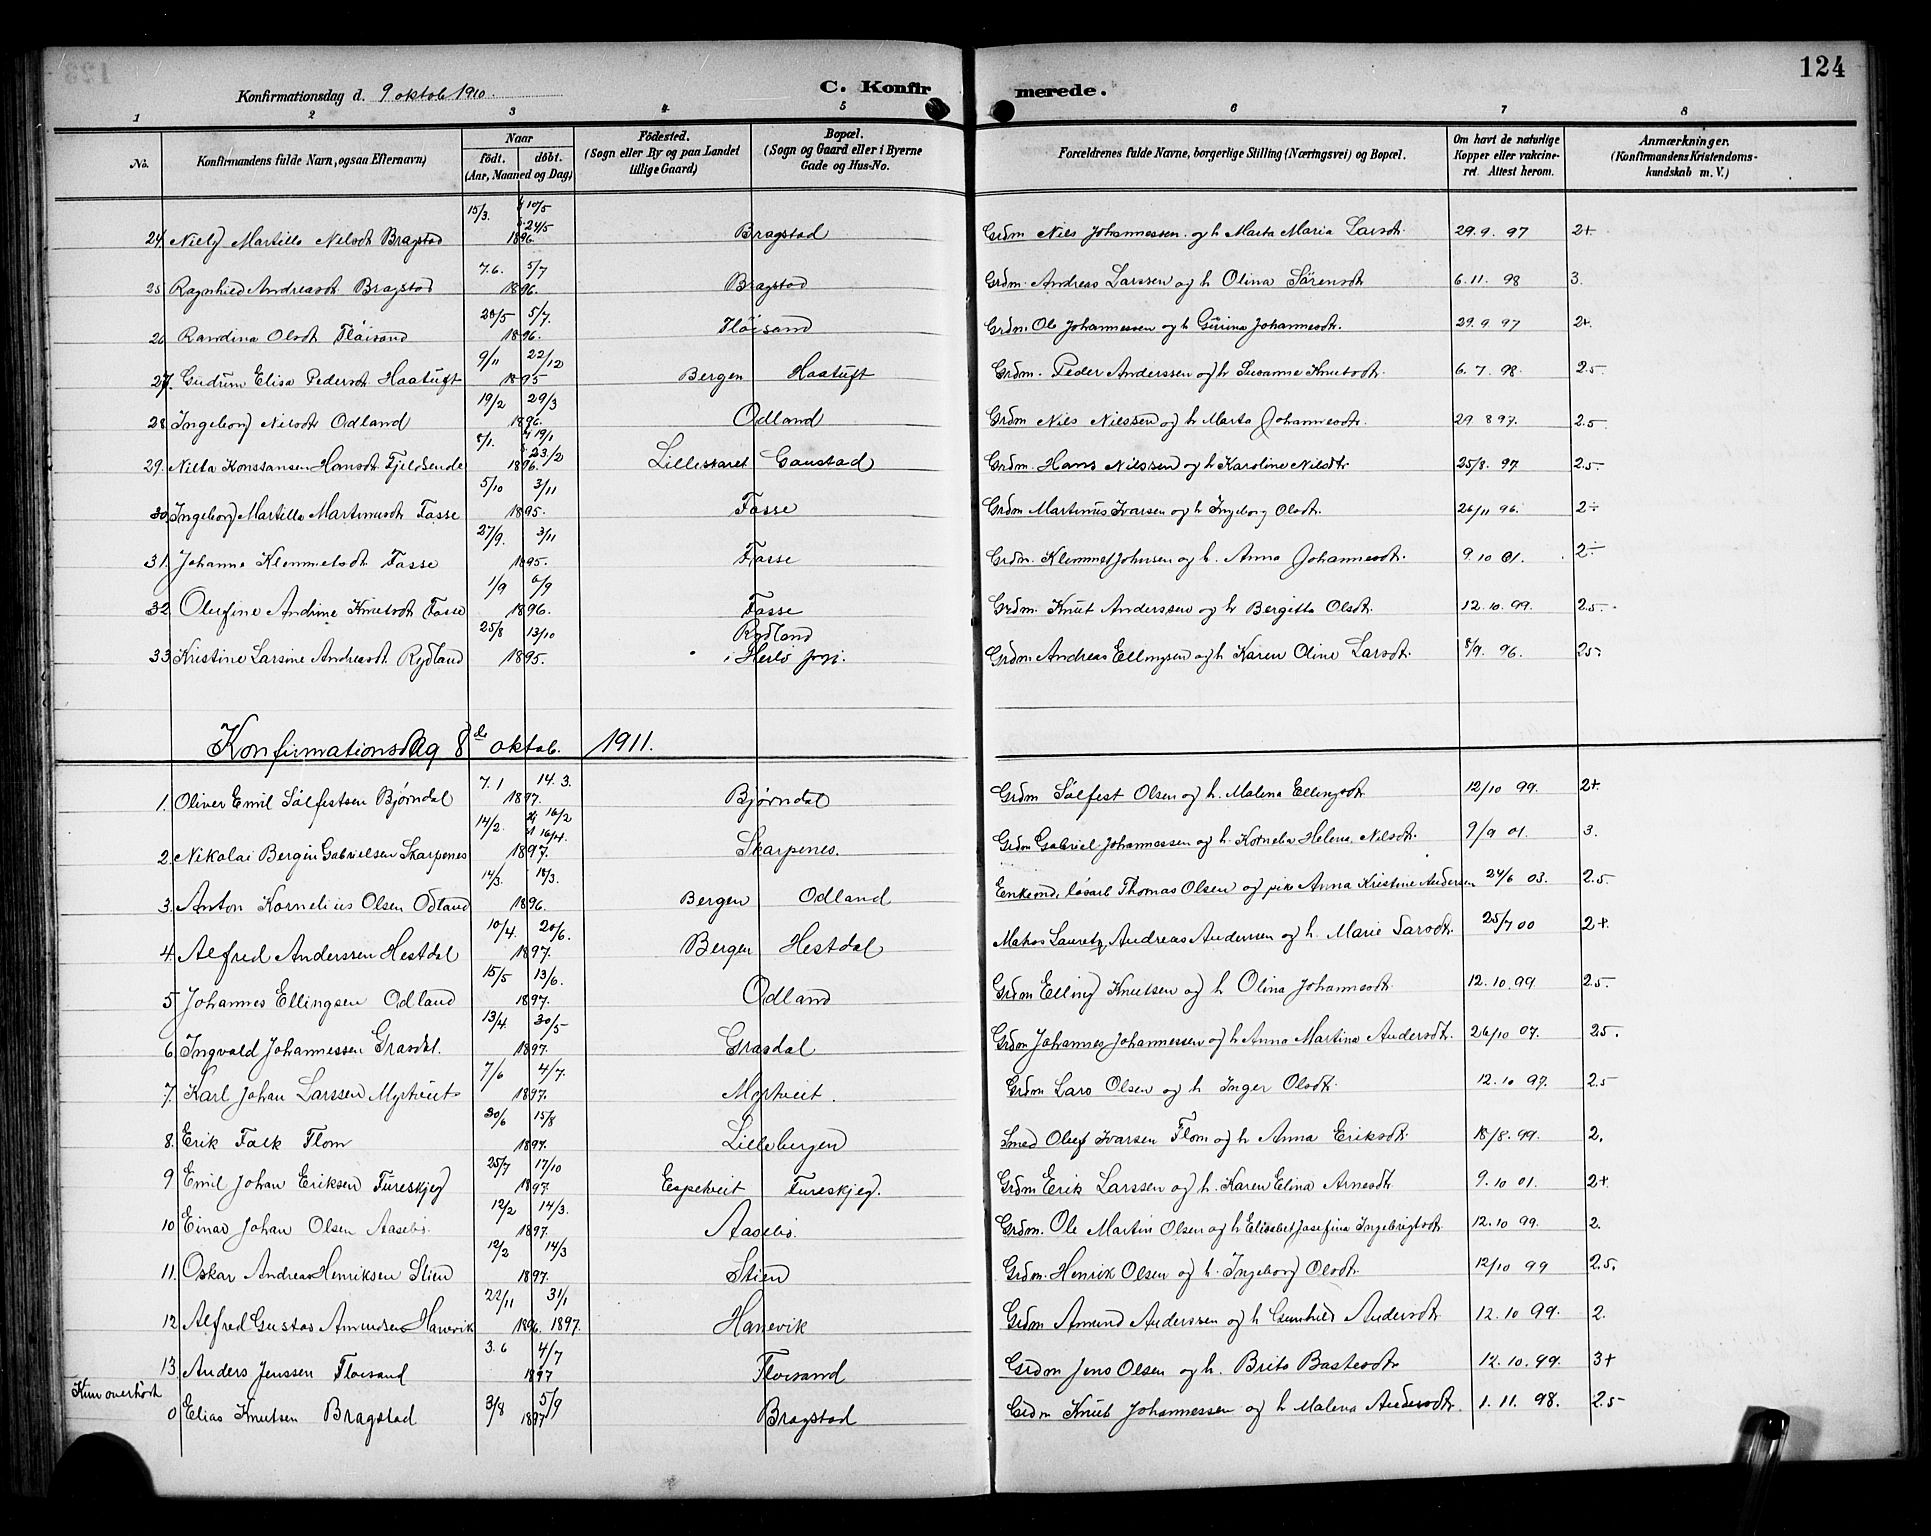 124
Konfirmationsdag d. 9 oktob 1910.
C. Konfirmerede.
1 2 3 4 5 6 7 8
No.
Konfirmandens fulde Navn, ogsaa Efternavn)
Naar
födt. döbt.
(Aar, Maaned og Dag)
Födested.
(Sogn eller By og paa Landet
tillige Gaard)
Bopæl.
(Sogn og Gaard eller i Byerne
Gade og Hus-No.
Forældrenes fulde Navne, borgerlige Stilling (Næringsvei) og Bopæl.
Om havt de naturlige
Kopper eller vakcine-
ret. Attest herom.
Anmærkninger.
(Konfirmandens Kristendoms-
kundskab m. V.)
24 Nielj Martille Nilsdt Bragstad 15/3. 10/5 24/5 1896. Bragstad Grdm Nils Johannessen og h Marta Maria Larsdt. 29.9.97 2+
25 Ragnhild Andreasdt. Bragstad 7.6. 5/7 1896. Bragstad Grdm. Andreas Larssen og h Olina Sörensdt 6.11.98 3.
26 Randina Olsdt Flöisand 28/5 5/7. 1896. Flöisand Grdm. Ole Johannessen og h Gurina Johannesdt. 29.9.97 2+.
27. Gudrun Elisa Pedersdt Haatuft 9/11 22/12 1895 Bergen Haatuft Grdm. Peder Anderssen og h Susanne Knutsdt. 6.7.98. 2.5
28 Ingeborg Nilsdt Odland 19/2 29/3 1896. Odland Grdm Nils Nilssen og h Marta Johannesdt. 29 8 97. 2.5
29. Nilla Konstanse Hansdt. Fjeldsende 8/1. 19/1 23/2 1896. Lilleskaret Gaustad Grdm. Hans Nilssen og h Karoline Nilsdt. 25/8. 97. 2.5
30 Ingeborg Martille Martinusdt Fosse 5/10 3/11 1895. Fosse Grdm Martinus Ivarsen og h Ingeborg Olsdt. 26/11 96. 2÷
31. Johanna Klemmetsdt. Fosse 27/9. 3/11 1895. Fosse Grdm. Klemmet Johnsen og h. Anna Johannesdt. 9.10 01. 2÷
32. Olufine Andrine Knutsdt Fosse 1/9 6/9 1896. Fosse Grdm. Knut Anderssen og h Bergitta Olsdt. 12.10.99. 2.5
33 Kristine Larsine Andreasdt Rydland 25/8 13/10 1895. Rydland
i Herlö prgj. Grdm Andreas Ellingsen og h Karen Oline Larsdt. 8/9. 96. 2.5
Konfirmationsdag 8de oktob. 1911.
1. Oliver Emil Sölfestsen Bjørndal 7.1 14.3. 1897. Bjørndal Grdm Sölfest Olsen og h. Malena Ellingsdt. 12/10 99. 2+
2. Nikolai Bergin Gabrielsen Skarpenes 14/2. 16/2 16/4. 1897. Skarpenes. Grdm Gabriel Johannessen og h. Kornelia Helena Nilsdt. 9/9 01. 3.
3. Anton Kornelius Olsen Odland 14/3. 18/3. 1896. Bergen Odland Enkemd. lösarb Thomas Olsen og pike Anna Kristine Andersen 24/6 03. 2.5.
4. Alfred Anderssen Hestdal 10/4. 20/6. 1897. Bergen Hestdal Matros Lauretz Andreas Anderssen og h. Marie Larsdt. 25/7 00 2+
5 Johannes Ellingsen Odland 15/5 13/6. 1897. Odland Grdm Elling Knutsen og h Olina Johannesdt. 12.10.99 2.5
6 Ingvald Johannessen Grasdal. 13/4. 30/5 1897. Grasdal Grdm Johannes Johannessen og h Anna Martina Andersdt. 26/10 07. 2.5.
7. Karl Johan Larssen Myrtveit 7/6 4/7. 1897. Myrtveit. Grdm Lars Olsen og h Inger Olsdt. 12.10 97. 2.5
8. Erik Falk Flom 30/6 15/8 1897. Lillebergen Smed Oluf Ivarsen Flom og h Anna Eriksdt. 18/8. 99. 2.
9 Emil Johan Eriksen Fureskjeg 25/7 17/10 1897 Espetveit Fureskjeg. Grdm Erik Larssen og h. Karen Elina Arnesdt 9.10 01. 2+
10 Einar Johan Olsen Aasebö. 12/2 14/3. 1897. Aasebö. Grdm. Ole Martin Olsen og h Elisabet Josefina Ingebrigtsdt. 12.10 99. 2.
11. Oskar Andreas Henriksen Stien 12/2 14/3 1897. Stien Grdm. Henrik Olsen og h. Ingeborg Olsdt. 12/10 99 2.5.
12 Alfred Gustav Amundsen Hanevik 22/11 1896. 31/1 1897. Hanevik Grdm Amund Anderssen og h Gunhild Andersdt. 12.10 99. 2.
13 Anders Jenssen Floisand 3.6 4/7 1897 Floisand Grdm Jens Olsen og h. Brita Bastesdt 12.10.99. 3+
Kun overhört
0 Elias Knutsen Bragstad 3/8 5/9 1897 Bragstad Grdm Knut Johannessen og h Malena Andersdt. 1.11.98. 2.5